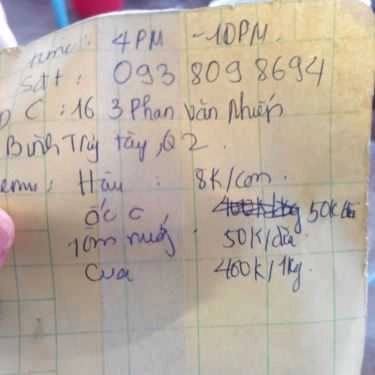 time: 4PM - 10PM.
Sdt: 093 809 8694
D C: 16 3 Phan Văn Nhiếp
Bình Trị Tây, Q2.
emu: Hàu : 8K/con.
Ốc C 50K/đĩa
Tôm nướng 50K/đĩa
Cua 400K/1kg.